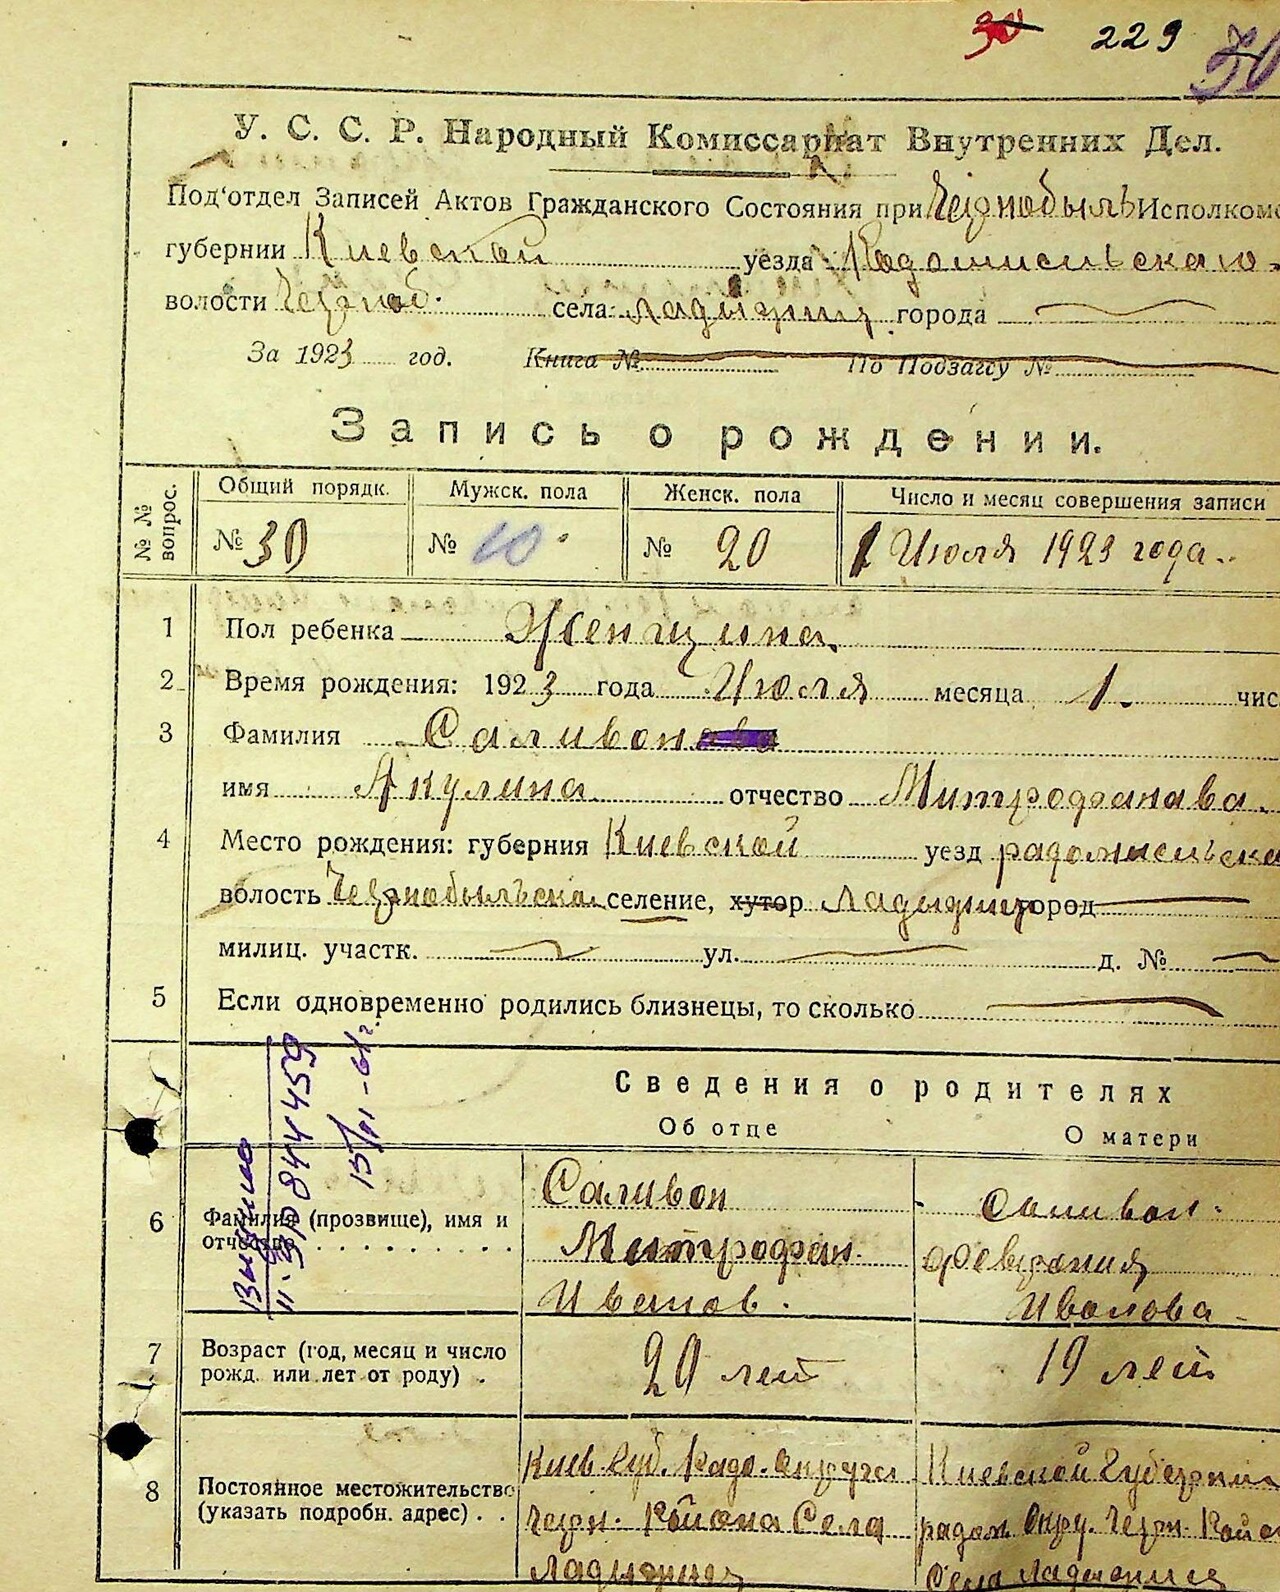 30 229 30
У. С. С. Р. Народный Комиссариат Внутренних Дел.
Под'отдел Записей Актов Гражданского Состояния при Чернобыль Исполкоме
губернии Киевской уезда Радомисльскаго
волости Черноб. села Ладыжичи города
За 1923 год. Книга № По Подзагсу №
Запись о рождении.
№ № вопрос. Общий порядк. Мужск. пола Женск. пола Число и месяц совершения записи
№ 30 № 10 № 20 1 Июля 1923 года
1 Пол ребенка Женщина
2 Время рождения: 1923 года Июля месяца 1. чис
3 Фамилия Саливон
имя Акулина отчество Митрофанава
4 Место рождения: губерния Киевской уезд радомисльска
волость Чернобыльска селение, хутор Ладыжичи город
милиц. участк. ул. д. №
5 Если одновременно родились близнецы, то сколько
Сведения о родителях
Об отце О матери
6 Фамилия (прозвище), имя и отчество
Саливон
Митрофан
Иванов.
Саливон
Феврония
Иванова
7 Возраст (год, месяц и число рожд. или лет от роду) . 20 лет 19 лет
8 Постоянное местожительство (указать подробн. адрес) . .
Киев Губ. Радо. Округа
Черн. Района Села
Ладыжичи
Киевской Губернии
радом Окру. Черн. Райо
Села Ладижичи
844459